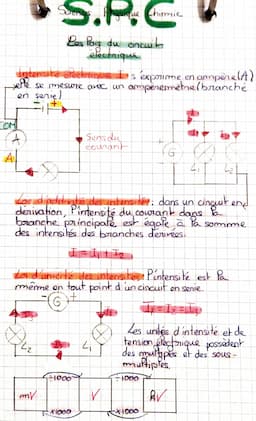 S.P.C
Sciences Physique Chimie
Les lois du circuit
électrique
Intensité électrique I : s'exprime en ampère (A)
elle se mesure avec un ampèremètre (branché
en serie)
COM
A
Sens du
courant
G
L1 L2
Loi d'additivité des intensités : dans un circuit en
dérivation, l'intensité du courant dans la
branche principale est égale à la somme
des intensités des branches derivées.
I = I1 + I2
Loi d'unicité des intensités l'intensité est la
même en tout point d'un circuit en serie.
G
L2 L1
Les unités d'intensité et de
tension électrique possèdent
des multiples et des sous-
multiples.
÷1000 ÷1000
mV V kV
x1000 x1000